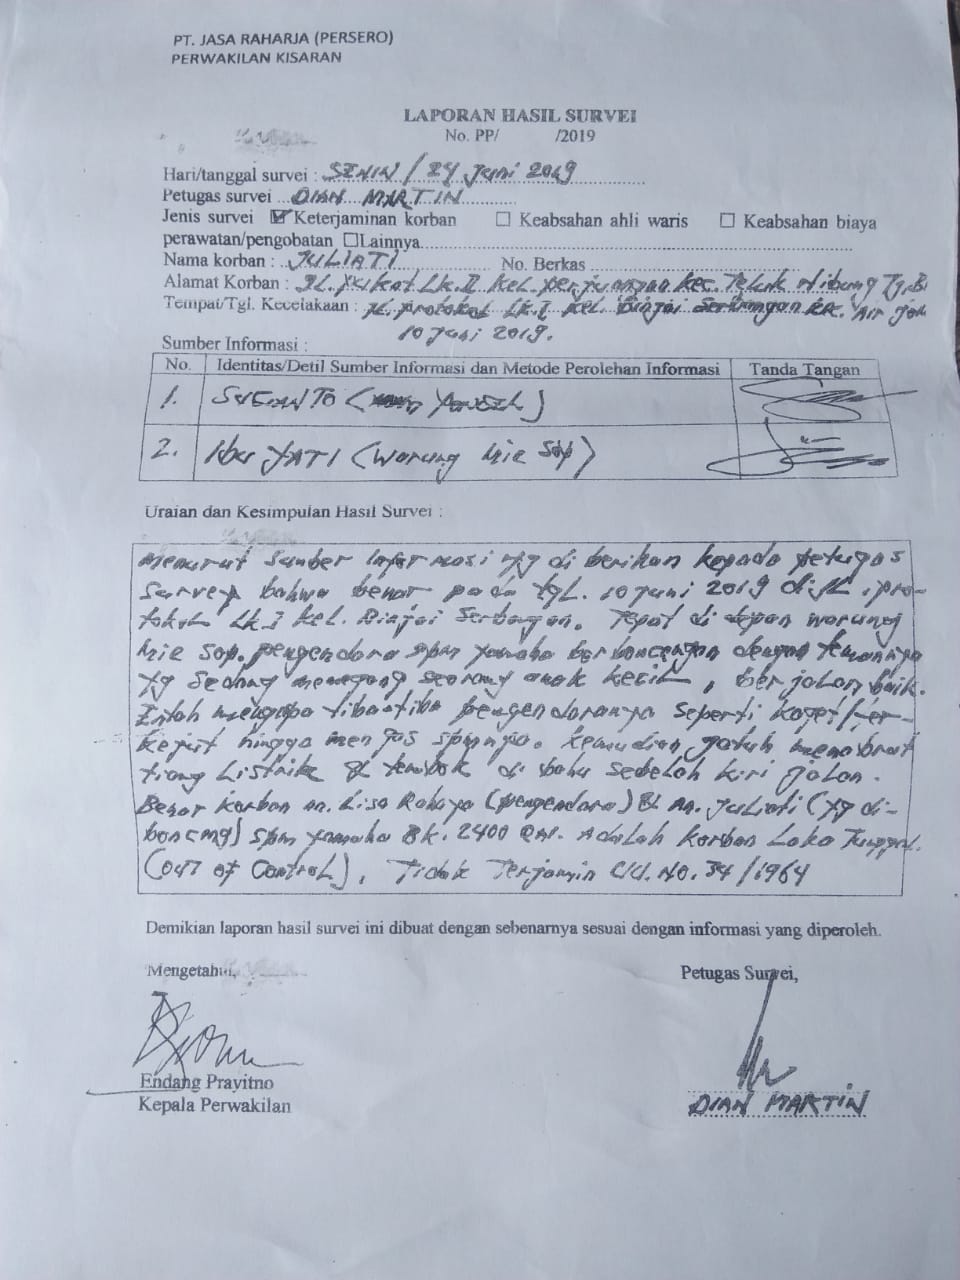 PT. JASA RAHARJA (PERSERO)
PERWAKILAN KISARAN
LAPORAN HASIL SURVEI
No. PP/ /2019
Hari/tanggal survei : SENIN / 24 Juni 2019
Petugas survei DIAN MARTIN
Jenis survei ☑ Keterjaminan korban ☐ Keabsahan ahli waris ☐ Keabsahan biaya
perawatan/pengobatan ☐ Lainnya
Nama korban : JULIATI No. Berkas
Alamat Korban : JL. Lk. II Kel. perjuangan Kec. Teluk Nibung Tg.B
Tempat/Tgl. Kecelakaan : JL. protokol Lk. I Kel. Binjai Serbangan Kec. Air Jom
10 Juni 2019.
Sumber Informasi :
No. Identitas/Detil Sumber Informasi dan Metode Perolehan Informasi Tanda Tangan
1. SUGIANTO
2. Ibu YATI (Warung Mie Sop)
Uraian dan Kesimpulan Hasil Survei :
Menurut Sumber Informasi yg di berikan kepada petugas
Survey bahwa benar pada tgl. 10 Juni 2019 di JL. pro-
tokol Lk. I Kel. Binjai Serbangan. Tepat di depan warung
Mie Sop. pengendara spm yamaha berboncengan dengan temannya
yg sedang memegang seorang anak kecil, berjalan baik.
Entah mengapa tiba-tiba pengendaranya seperti kaget/ter-
kejut hingga mengas spmnya. kemudian jatuh menabrak
tiang Listrik & tembok di bahu sebelah kiri jalan.
Benar korban an. Lisa Rahayu (pengendara) & an. Juliati (yg di-
bonceng) spm yamaha BK. 2400 Adalah korban Laka Tunggal.
(Out of Control), Tidak Terjamin UU. No. 34/1964
Demikian laporan hasil survei ini dibuat dengan sebenarnya sesuai dengan informasi yang diperoleh.
Mengetahui, Petugas Survei,
Endang Prayitno
Kepala Perwakilan DIAN MARTIN